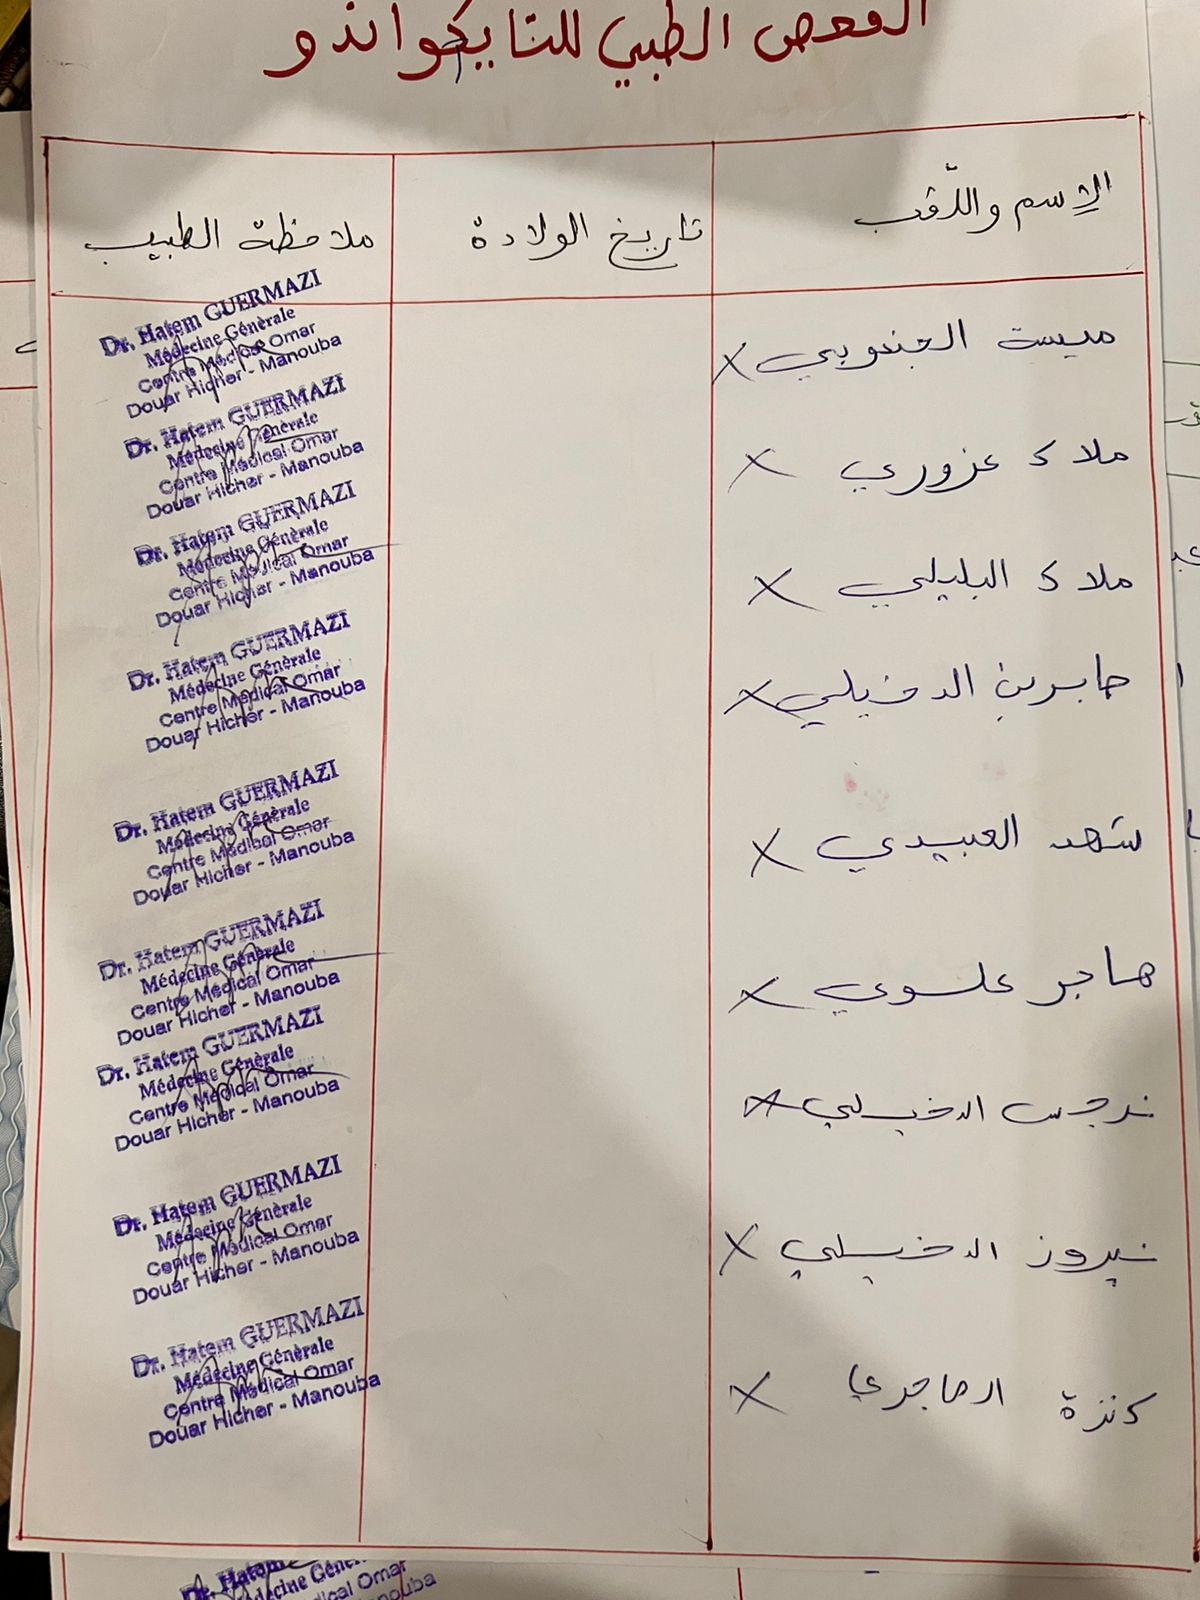 الفحص الطبي للتايكواندو
الإسم واللّقب
تاريخ الولادة
ملاحظة الطبيب
ميسة الجنوبي X
Dr. Hatem GUERMAZI
Médecine Générale
Centre Médical Omar
Douar Hicher - Manouba
ملاك عزوري X
Dr. Hatem GUERMAZI
Médecine Générale
Centre Médical Omar
Douar Hicher - Manouba
ملاك البليلي X
Dr. Hatem GUERMAZI
Médecine Générale
Centre Médical Omar
Douar Hicher - Manouba
صابرين الدخيلي X
Dr. Hatem GUERMAZI
Médecine Générale
Centre Médical Omar
Douar Hicher - Manouba
شهد العبيدي X
Dr. Hatem GUERMAZI
Médecine Générale
Centre Médical Omar
Douar Hicher - Manouba
هاجر علوي X
Dr. Hatem GUERMAZI
Médecine Générale
Centre Médical Omar
Douar Hicher - Manouba
نرجس الدخيلي X
Dr. Hatem GUERMAZI
Médecine Générale
Centre Médical Omar
Douar Hicher - Manouba
نيروز الدخيلي X
Dr. Hatem GUERMAZI
Médecine Générale
Centre Médical Omar
Douar Hicher - Manouba
كنزة الماجري X
Dr. Hatem GUERMAZI
Médecine Générale
Centre Médical Omar
Douar Hicher - Manouba
Dr. Hatem